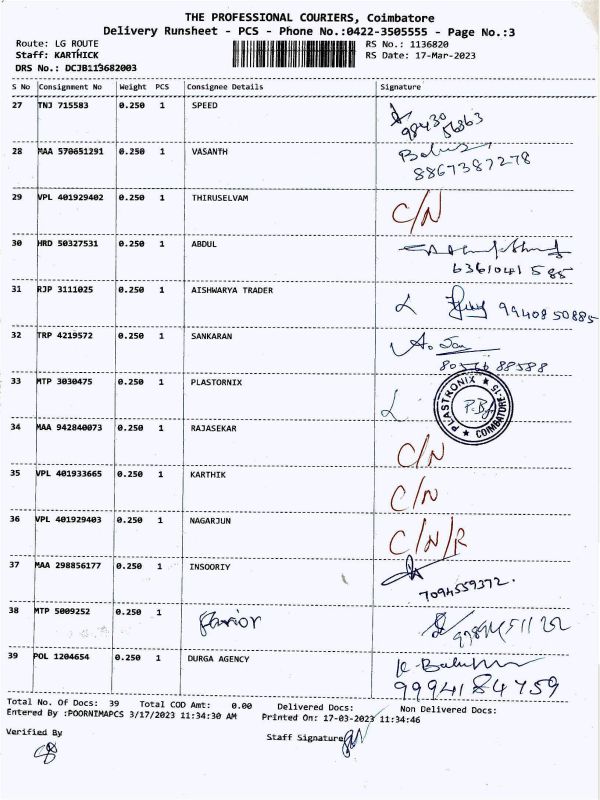 THE PROFESSIONAL COURIERS, Coimbatore
Delivery Runsheet - PCS - Phone No.:0422-3505555 - Page No.:3
Route: LG ROUTE RS No.: 1136820
Staff: KARTHICK RS Date: 17-Mar-2023
DRS No.: DCJB113682003
S No Consignment No Weight PCS Consignee Details Signature
27 TNJ 715583 0.250 1 SPEED
98430 56863
28 MAA 570651291 0.250 1 VASANTH
8867387278
29 VPL 401929402 0.250 1 THIRUSELVAM C/N
30 HRD 50327531 0.250 1 ABDUL
6361041585
31 RJP 3111025 0.250 1 AISHWARYA TRADER
9940850885
32 TRP 4219572 0.250 1 SANKARAN
80566 88588
33 MTP 3030475 0.250 1 PLASTORNIX
PLASTRONIX ★ COIMBATORE-15 ★
34 MAA 942840073 0.250 1 RAJASEKAR C/N
35 VPL 401933665 0.250 1 KARTHIK C/N
36 VPL 401929403 0.250 1 NAGARJUN C/N/R
37 MAA 298856177 0.250 1 INSOORIY
7094559372.
38 MTP 5009252 0.250 1
39 POL 1204654 0.250 1 DURGA AGENCY
9994184759
Total No. Of Docs: 39 Total COD Amt: 0.00 Delivered Docs: Non Delivered Docs:
Entered By :POORNIMAPCS 3/17/2023 11:34:30 AM Printed On: 17-03-2023 11:34:46
Verified By Staff Signature